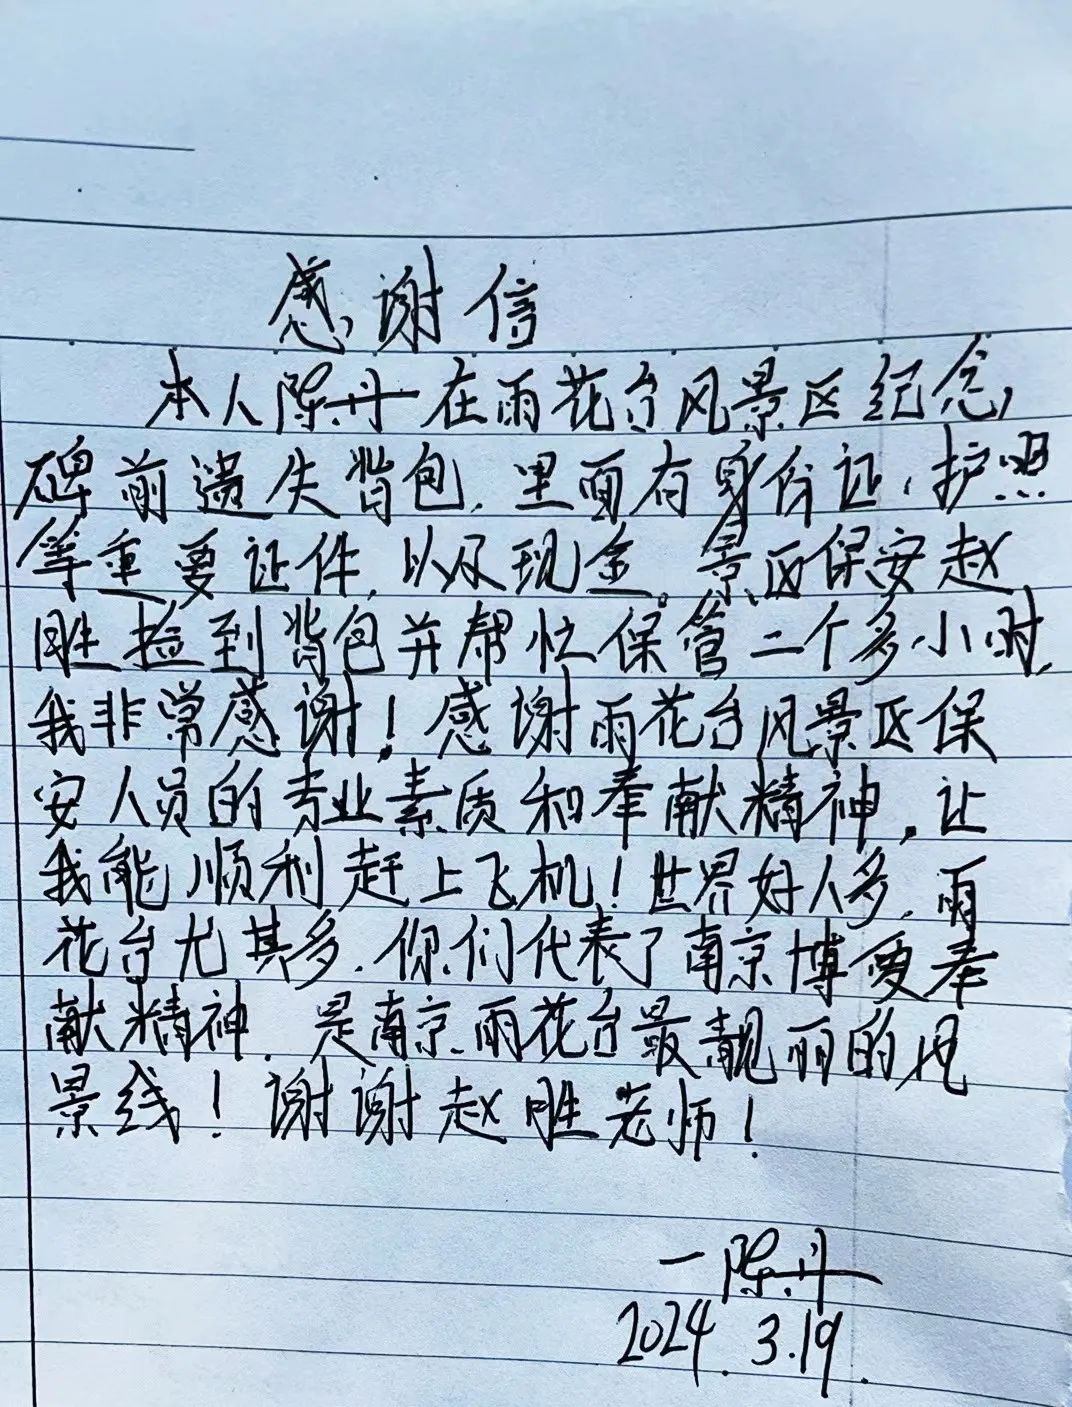 感谢信
本人陈丹在雨花台风景区纪念
碑前遗失背包,里面有身份证,护照
等重要证件,以及现金。景区保安赵
胜捡到背包并帮忙保管二个多小时,
我非常感谢!感谢雨花台风景区保
安人员的专业素质和奉献精神,让
我能顺利赶上飞机!世界好人多,雨
花台尤其多,你们代表了南京博爱奉
献精神,是南京雨花台最靓丽的风
景线!谢谢赵胜老师!
一陈丹
2024.3.19.